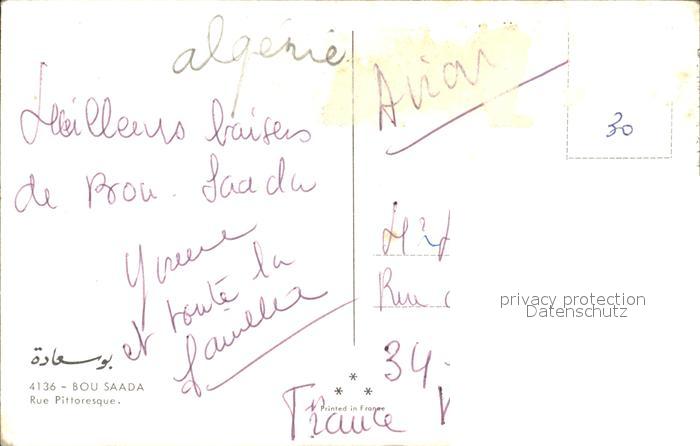 algérie
Meilleurs baisers
de Bou-Saada
Yvonne
et toute la
famille
بوسعادة
4136 - BOU SAADA
Rue Pittoresque.
Avion
30
Rue
34
France
Printed in France
privacy protection
Datenschutz